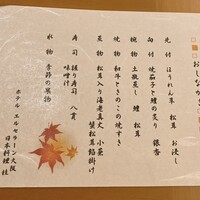 おしながき
先付 ほうれん草 松茸 お浸し
向付 焼茄子と鱧の炙り 銀杏
椀物 土瓶蒸し 鱧 松茸
焼物 和牛ときのこの焼すき
煮物 松茸入り海老真丈 小蕪
蟹松茸餡掛け
寿司 握り寿司 八貫
味噌汁
水物 季節の果物
ホテル エルセラーン大阪
日本料理